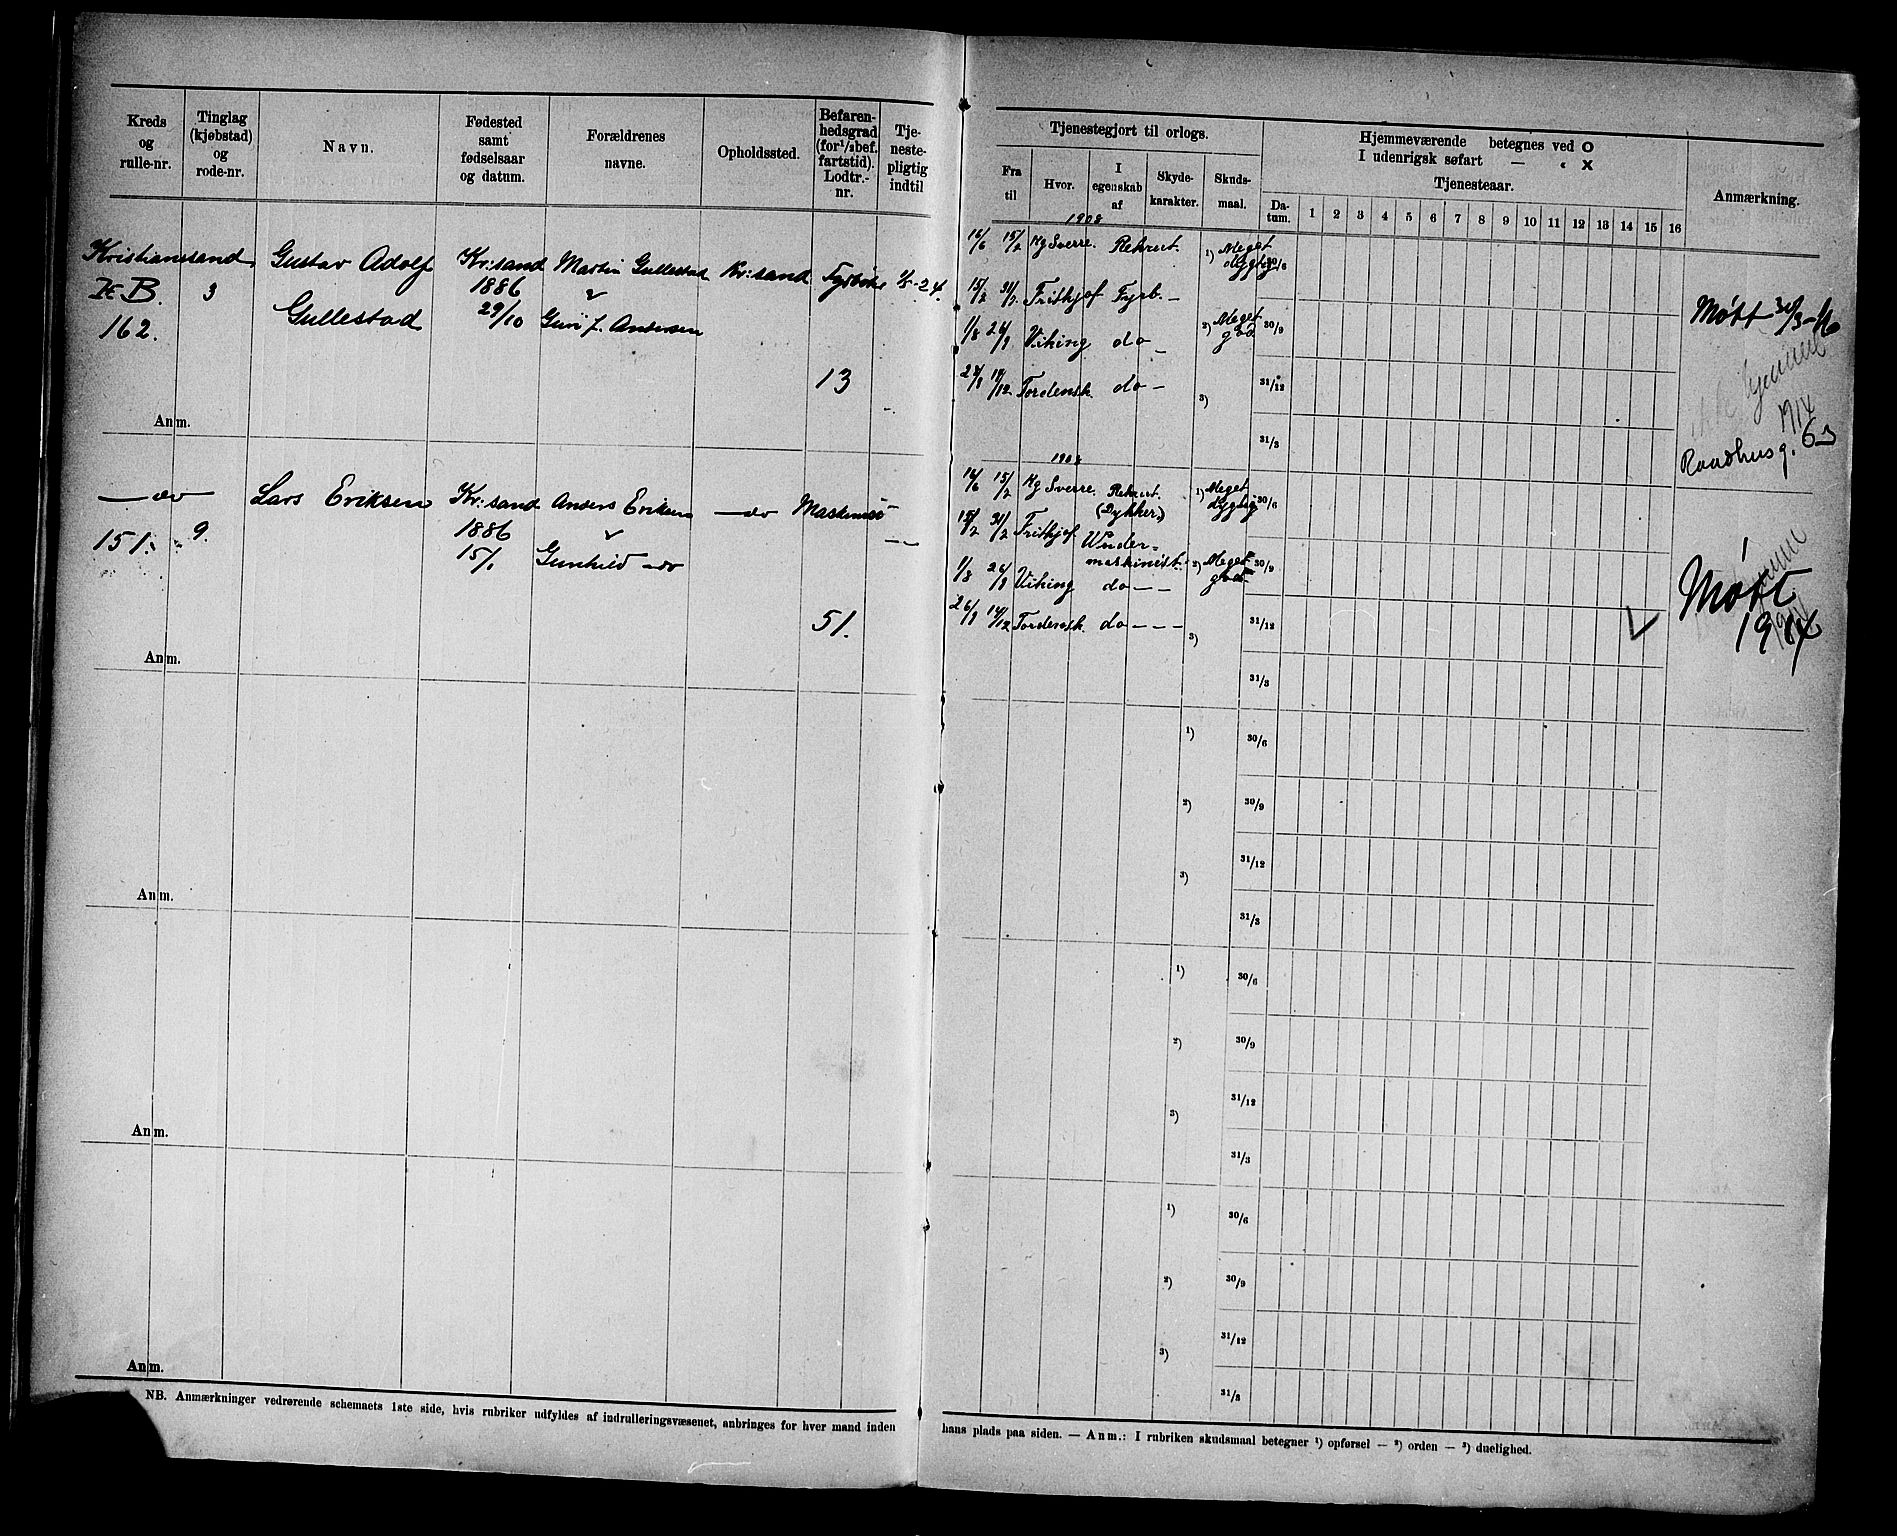 Kreds og rulle-nr.
Tinglag (kjøbstad) og rode-nr.
Navn.
Fødested samt fødselsaar og datum.
Forældrenes navne.
Opholdssted.
Befaren-hedsgrad (for ½bef. fartstid). Lodtr.-nr.
Tje-neste-pligtig indtil
Tjenestegjort til orlogs.
Fra til
Hvor.
I egenskab af
Skyde-karakter.
Skuds-maal.
Hjemmeværende betegnes ved O
I udenrigsk søfart — „ X
Tjenesteaar.
Da-tum.
1 2 3 4 5 6 7 8 9 10 11 12 13 14 15 16
Anmærkning.
Kristianssand
B.
162.
3
Gustav Adolf
Gullestad
Kr:sand
1886
29/10
Martin Gullestad
Andersen
Kr:sand
13
1908
15/2 Kg Sverre. Rekrut.
15/2 Frithjof Fyrb. –
1/8 Viking do –
Tordensk. do –
1) Meget dygtig 30/6
2) Meget god 30/9
3) 31/12
31/3
Møtt
1914
Raadhusg. 63
Anm.
— do
151.
9.
Lars Eriksen
Kr:sand
1886
15/1
Anders Eriksen
Gunhild – do
— do
51.
1908
15/2 Kg Sverre. Rekrut. (Dykker.)
15/2 Frithjof Under-maskinist.
1/8 Viking do – –
26/9 Tordensk. do – – –
1) Meget dygtig 30/6
2) Meget god 30/9
3) 31/12
31/3
Møtt
1914
Anm.
1) 30/6
2) 30/9
3) 31/12
31/3
Anm.
1) 30/6
2) 30/9
3) 31/12
31/3
Anm.
1) 30/6
2) 30/9
3) 31/12
31/3
Anm.
NB. Anmærkninger vedrørende schemaets 1ste side, hvis rubriker udfyldes af indrulleringsvæsenet, anbringes for hver mand inden hans plads paa siden. — Anm.: I rubriken skudsmaal betegner 1) opførsel — 2) orden — 3) duelighed.